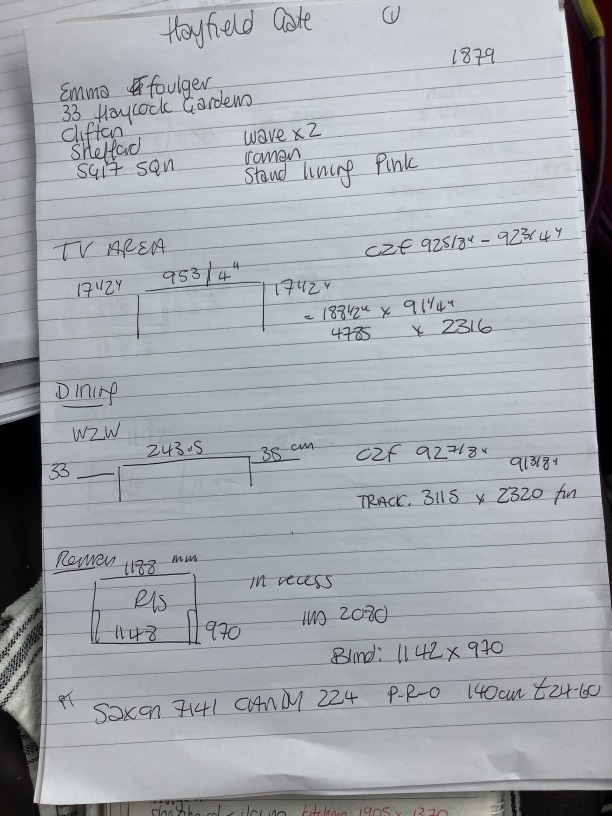 Hayfield Gate ①
1879
Emma Foulger
33 Haycock Gardens
Clifton
Shefford wave x 2
SG17 5QN roman
Stand lining Pink
TV AREA C2F 92 5/8" - 92 3/4"
17 1/2" 95 3/4" 17 1/2"
= 188 1/2" x 91 1/4"
4785 x 2316
Dining
W2W
243.5 35 cm C2F 92 7/8" 91 3/8"
33
TRACK. 3115 x 2320 fin
Roman 1188 mm
in recess
R/S
1148 970 2080
Blind: 1142 x 970
Saxon 7141 CANDY 224 P-R-O 140cm £24-60
kitchen 1905 x 1370